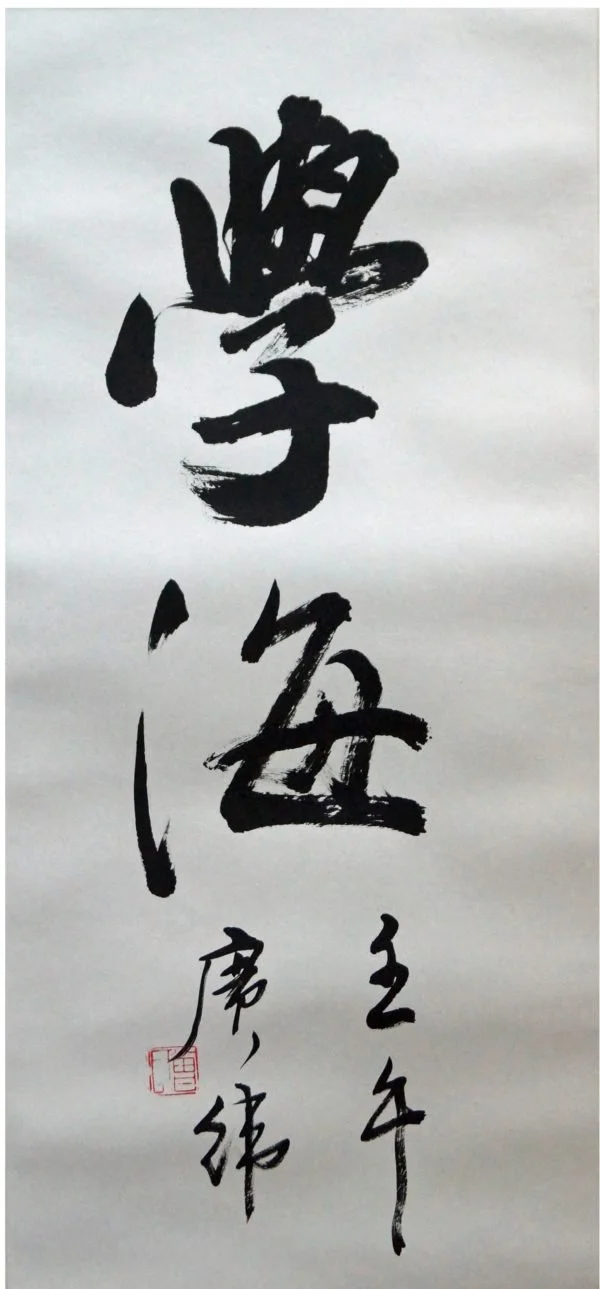 學海
壬午
席緯